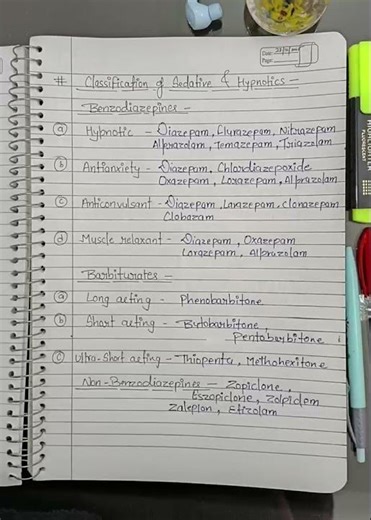 Date:
Page:
# Classification of Sedative & Hypnotics -
Benzodiazepines -
(a) Hypnotic - Diazepam, Flurazepam, Nitrazepam
Alprazolam, Temazepam, Triazolam
(b) Antianxiety - Diazepam, Chlordiazepoxide
Oxazepam, Lorazepam, Alprazolam
(c) Anticonvulsant - Diazepam, Lanzepam, Clonazepam
Clobazam
(d) Muscle relaxant - Diazepam, Oxazepam
Lorazepam, Alprazolam
Barbiturates -
(a) Long acting - Phenobarbitone
(b) Short acting - Butobarbitone,
Pentobarbitone
(c) Ultra-Short acting - Thiopenta, Methohexitone
Non-Benzodiazepines - Zopiclone,
Eszopiclone, Zolpidem
Zaleplon, Etizolam